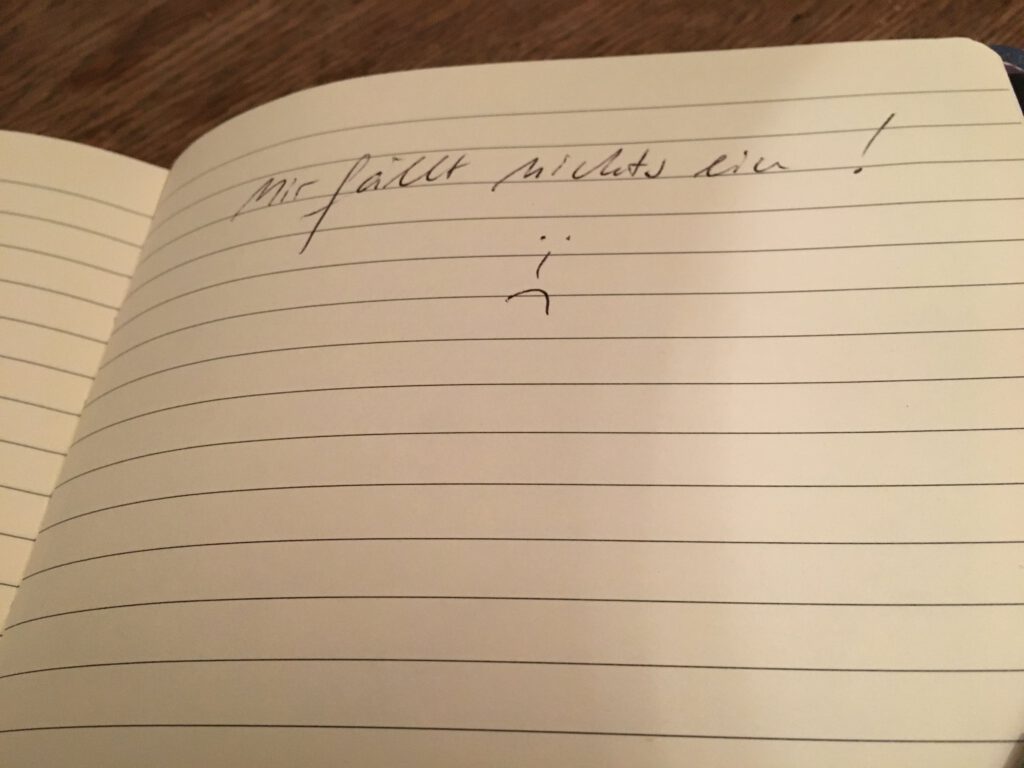 Mir fällt nichts ein !